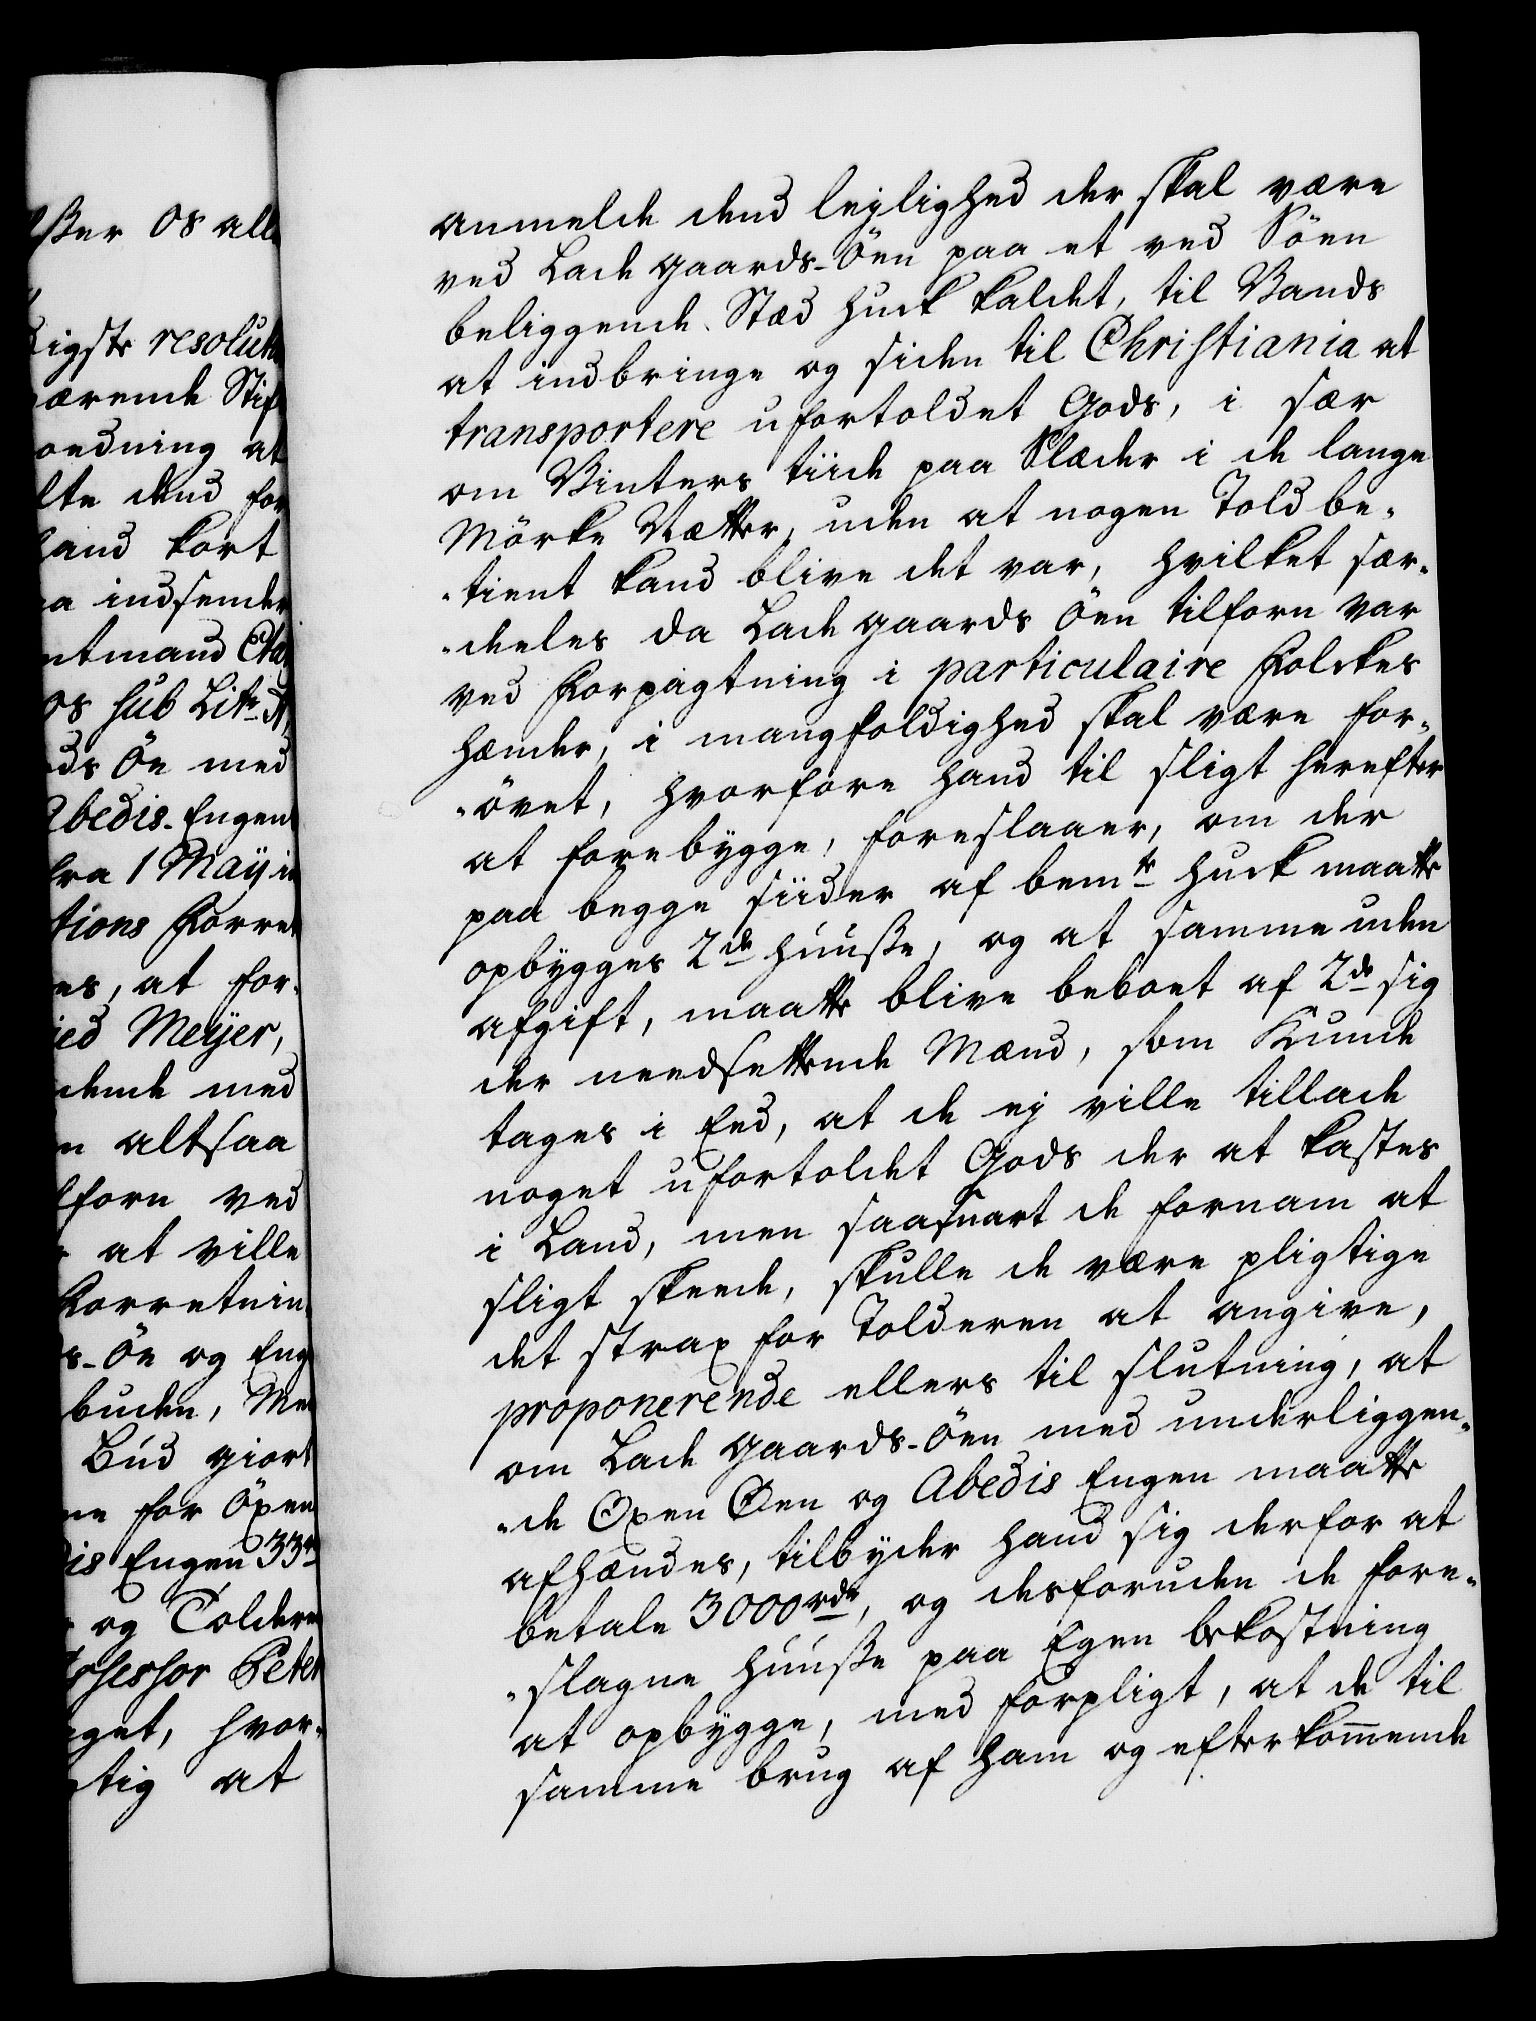 ßer os all
igste resolut
værende Stif
ordning at
lte dend for
hand kort
a indsender
ntmand Eta
os sub Litr: A
ds Öe med
Abedis-Engen
fra 1 Maÿ i
tions Forret
es, at for-
ied Meÿer,
dende med
n altsaa
lforn ved
at ville
Forretnin
s-Öe og Eng
buden, Me
Bud giort
ne for Öxen
dis Engen 33 rd
og Tolderen
Assessor Peter
get, hvor-
tig at
anmelde dend lejlighed der skal være
ved Ladegaards-Öen paa et ved Söen
beliggende Stæd Huck kaldet, til Vands
at indbringe og siden til Christiania at
transportere ufortoldet Gods, i sær
om Vinters tiide paa Slæder i de lange
Mörke Nætter, uden at nogen Told be-
-tient kand blive det var, hvilket sær-
-deeles da Ladegaards Öen tilforn var
ved Forpagtning i particulaire Folckes
hænder, i mangfoldighed skal være for-
-övet, hvorfore hand til sligt herefter
at forebygge, foreslaaer, om der
paa begge siider af bemte Huck maatte
opbygges 2de Huuße, og at samme uden
afgift, maatte blive beboet af 2de sig
der needsettende Mænd, som Kunde
tages i Eed, at de ej ville tillade
noget ufortoldet Gods der at kastes
i Land, men saasnart de fornam at
sligt skeede, skulle de være pligtige
det strax for Tolderen at angive,
proponerende ellers til slutning, at
om Ladegaards-Öen med underliggen-
-de Oxen Öen og Abedis Engen maatte
afhændes, tilbyder hand sig derfor at
betale 3000 rdr, og desforuden de fore-
-slagne Huuße paa Egen bekostning
at opbygge, med forpligt, at de til
samme brug af ham og efterkom̄ende